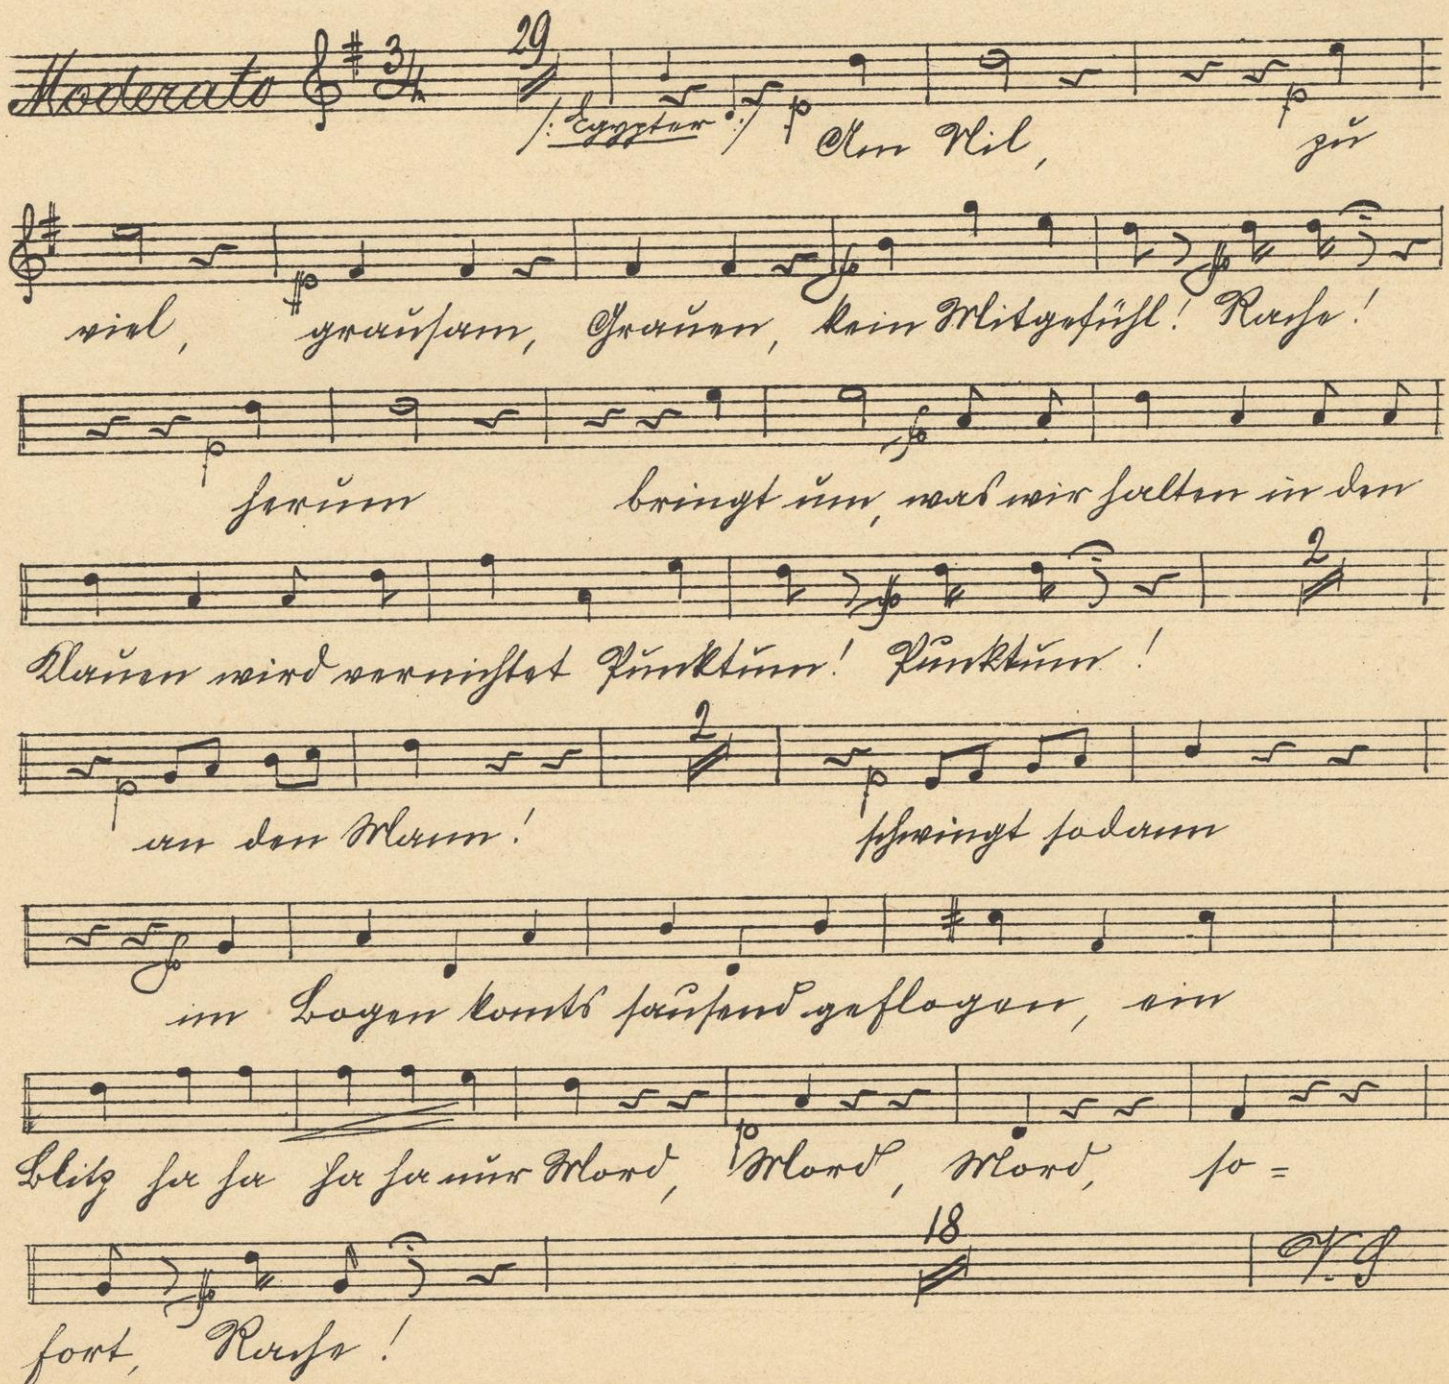 Moderato 3/4 29
/: Egypter :/ p Am Nil, p zu
viel, pp grausam, Grauen, f kein Mitgefühl! ff Rache!
p herum bringt um, f was wir halten in den
2
Klauen wird vernichtet Punktum! ff Punktum!
2
p an den Mann! p schwingt sodann
f im Bogen komts sausend geflogen, ein
Blitz ha ha ha ha nur Mord, p Mord, Mord, so=
18 V. S
fort, ff Rache!